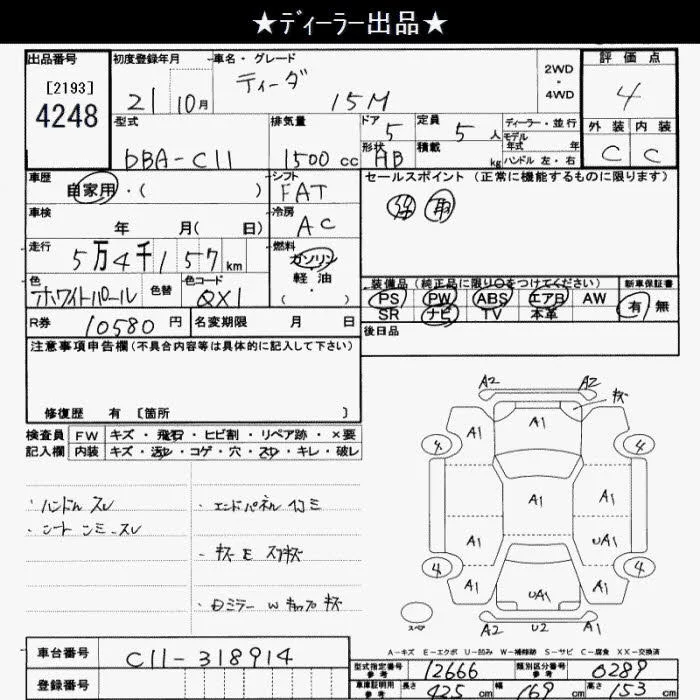 ★ディーラー出品★
出品番号
[2193]
4248
初度登録年月
21 10月
車名・グレード
ティーダ
15M
2WD
・
4WD
評価点
4
外装 内装
C C
型式
DBA-C11
排気量
1500 cc
ドア 5
形状 HB
定員 5 人
積載 kg
ディーラー・並行
モデル年式 年
ハンドル 左・右
車歴
自家用・( )
シフト
FAT
車検
年 月( 日)
冷房
AC
走行
5万4千157km
燃料
ガソリン
軽油
・
( )
色
ホワイトパール
色替
色コード
QX1
R券
10580円
名変期限 月 日
セールスポイント(正常に機能するものに限ります)
取
装備品(純正品に限り○をつけてください)
PS PW ABS エアB AW
SR ナビ TV 本革
新車保証書
有 無
後日品
注意事項申告欄(不具合内容等は具体的に記入して下さい)
修復歴 有 [箇所 ]
検査員記入欄
FW キズ・飛石・ヒビ割・リペア跡・×要
内装 キズ・汚れ・コゲ・穴・スレ・キレ・破レ
・ハンドル スレ
・エンドパネル
・キズ E スリキズ
W キャップ キズ
A2 A2
キズ
A1 A1 A1
4 4
A1 A1 A1
A1 UA1
4 4
A1 UA1 A1
A2 U2 A1
スペア
A-キズ E-エクボ U-凹み W-補修跡 S-サビ C-腐食 XX-交換済
車台番号
C11-318914
登録番号
型式指定番号 参考 12666
類別区分番号 参考 0289
車庫証明用 参考 長さ 425 cm 幅 169 cm 高さ 153 cm